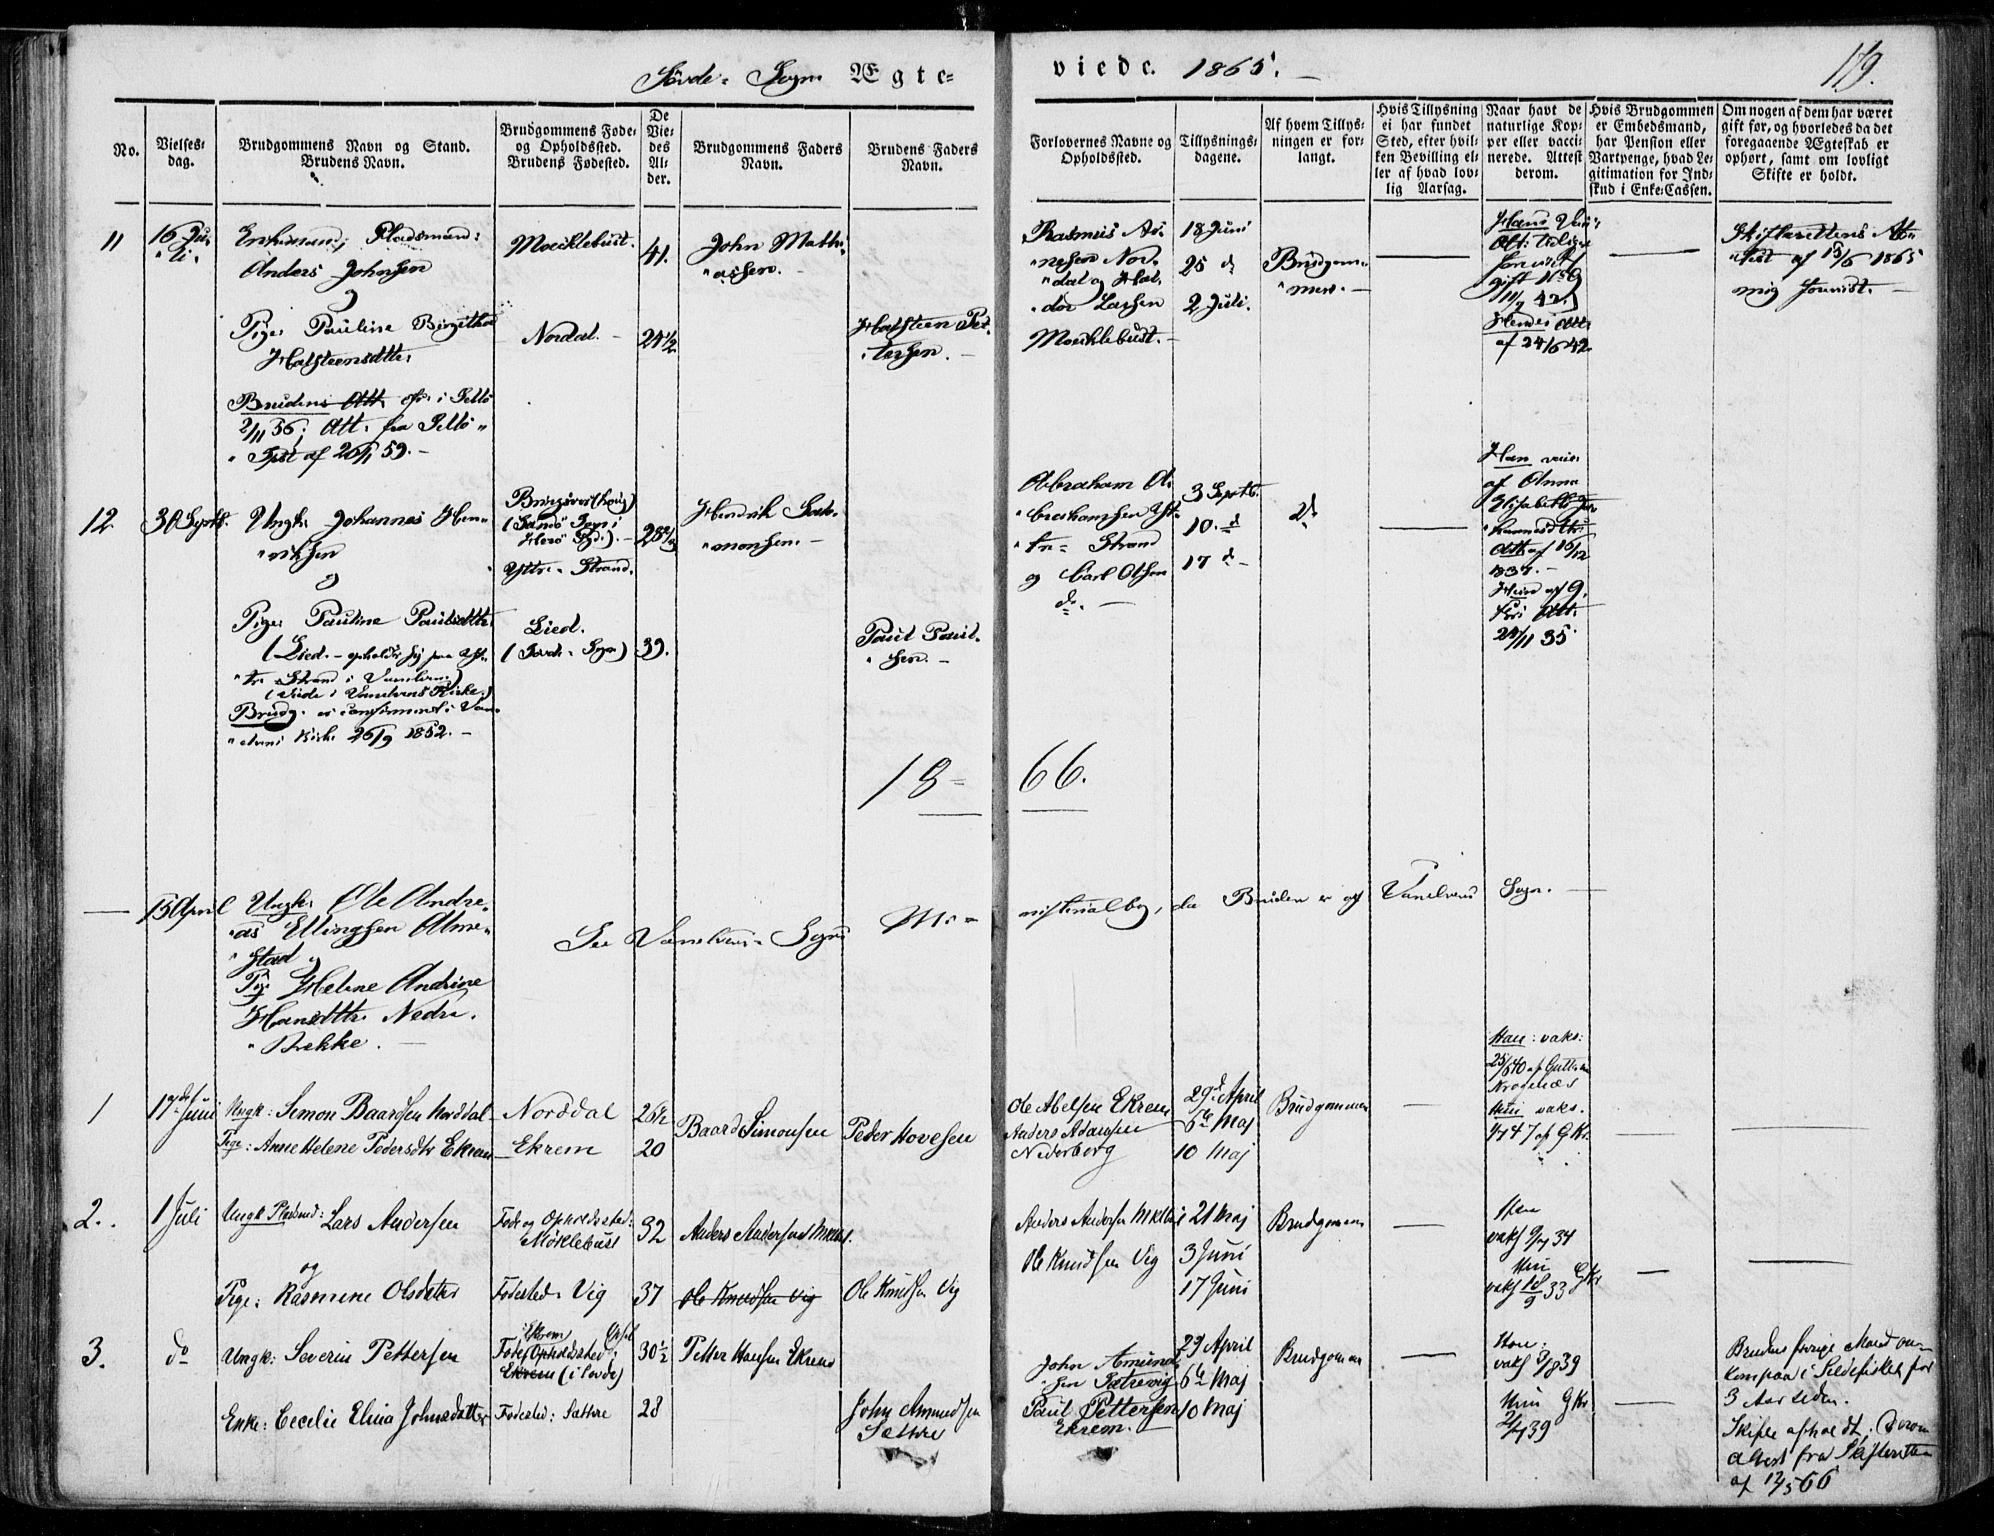 Søvde- Sogn Ægte-
viede. 1865.
119.
No.
Vielses-
dag.
Brudgommens Navn og Stand.
Brudens Navn.
Brudgommens Føde-
og Opholdssted.
Brudens Fødested.
De
Vie-
des
Al-
der.
Brudgommens Faders
Navn.
Brudens Faders
Navn.
Forlovernes Navne og
Opholdssted.
Tillysnings-
dagene.
Af hvem Tillys-
ningen er for-
langt.
Hvis Tillysning
ei har fundet
Sted, efter hvil-
ken Bevilling el-
ler af hvad lov-
lig Aarsag.
Naar havt de
naturlige Kop-
per eller vacci-
nerede. Attest
derom.
Hvis Brudgommen
er Embedsmand,
har Pension eller
Vartpenge, hvad Le-
gitimation for Ind-
skud i Enke-Cassen.
Om nogen af dem har været
gift før, og hvorledes da det
foregaaende Ægteskab er
ophørt, samt om lovligt
Skifte er holdt.
11
16 Ju-
"li"
Enkemand, Pladsmand:
Anders Johnsen
og
Pige: Pauline Birgithe
Halsteensdttr
Brudens Att. 
2/11 36; Att. fra
af 26/1 59.-
Moeklebust.
Nordal.
41.
24 1/2
John Mathi-
"assen.
Halsteen Pet-
"tersen.
Rasmus Ar-
"nesen Nor-
"dal og Hal-
"dor Larsen
Moeklebust.
18 Juni
25 d
2 Juli.
Brudgom-
"men.
gift No 9
11/9 42.
Hendes Att.
af 24/6 42
Skifterettens At-
"test af 13/6 1865
mig forevist.
12.
30 Septb.
Ungk: Johannes Hen-
"riksen
og
Pige: Pauline Paulsdttr
(Lied. - opholder sig paa Yt-
"tre Strand i Vanelven)
(Viede i Vanelvens Kirke.)
Brudg. er confirmeret i Van-
"elvens Kirke 26/9 1852.
(Sandø Sogn i
Herø
Yttre- Strand.
Lied.
(Søvde- Sogn)
39.
Hendrik Salo-
"monsen.
Paul Paul-
"sen.
Abraham A-
"brahamsen Yt-
"tre- Strand
og Carl Olsen
do.
3 Septb.
10. d
17 d
d
Han vacc.
af Anna
Elisabeth Jo-
"hannesdttr
Att. af 16/12
1837.
24/11 35.
18- 66.
15 April
Ungk. Ole Andre-
"as Ellingsen Alme-
"stad og
Pige Helene Andrine
Hansdttr. Nedre.
"Brekke.
See Vanelvens- Sogns Mi-
nisterialbog, da Bruden er af Vanelvens Sogn.
1
17de Juni
Ungk: Simon Baardsen Norddal
Pige: Anne Helene Pedersdtr Ekrem
Norddal
Ekrem
26 1/2
20
Baard Simonsen
Peder Hovesen
Ole Abelsen Ekrem
Anders Adamsen
Nederborg
29d April
6te Maj
10 Maj
Brudgommen
Han: vaks:
25/6 40 af Guttorm
Krogenæs
Hun vaks.
47 af G.Kr.
2.
1 Juli
Ungk Pladsmd: Lars Andersen
og
Pige: Rasmine Olsdatter
Føde og Opholdssted:
Møklebust
Fødested: Vig
32
37
Anders Andersen Mklbst.
Ole Knudsen Vig
Ole Knudsen Vig
Anders Andersen Mklb
Ole Knudsen Vig
21 Maj
3 Juni
17 Juni
Brudgomen
Han
vaks 9/7 34
Hun
vaks 18/9 33 GKr
3.
do
Ungk: Severin Pettersen
Enke: Cecilie Elina Johnsdatter
Ekrem
Føde Opholdssted:
Ekrem (i Søvde)
Fødested: Sættre
30 1/2
28
Petter Hansen Ekrem
John Amundsen
Sættre
John Amund-
"sen Sætrevig
Paul Pettersen
Ekrem.
29 April
6te Maj
10 Maj
Brudgomen
Han:
vaks 3/8 39
Hun GKr
2/7 39
Brudens forrige Mand om-
kom paa i Sildefisket for
3 Aar siden.
Skifte afholdt; Derom
Attest fra Skifteretten
af 12/5 66